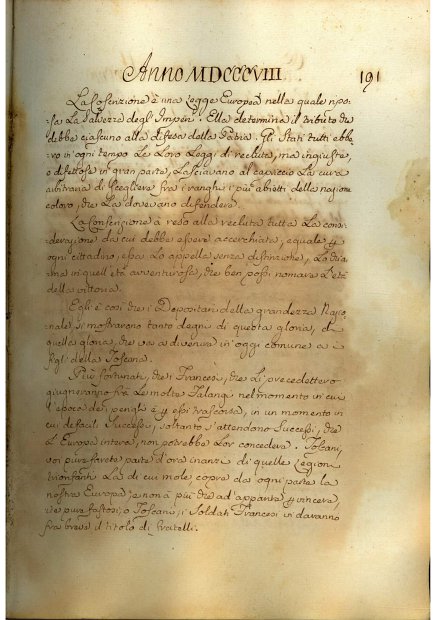 Anno MDCCCVIII 191
La Coscrizione è una Legge Europea nella quale ripo-
sa La salvezza degl'Imperi. Ella determina il tributo che
debbe ciascuno alla difesa della Patria. Gli Stati tutti ebbe-
ro in ogni tempo Le Loro Leggi di recluta, ma ingiuste,
e difettose in gran parte, Lasciavano al capriccio La cura
arbitraria di scegliere fra i ranghi i più abietti della nazione
coloro, che La dovevano difendere.
La Coscrizione à reso alla recluta tutta La consi-
derazione da cui debbe essere accerchiata, equale
ogni cittadino, essa Lo appella senza distinzione, Lo chia-
ma in quell'età avventurosa, che ben possi nomare L'età
della vittoria.
Egli è così che i Depositari della grandezza Nazio-
nale, si mostrarono tanto degni di questa gloria, di
quella gloria, che va a divenire in oggi comune a i
figli della Toscana.
Più fortunati, che i Francesi, che Li precedettero
giugneranno fra Le molte Falangi nel momento in cui
l'epoca dei perigli è essi trascorsa, in un momento in
cui de facili Successi, soltanto s'attendono Successi, che
L'Europa intera, non potrebbe Lor concedere. Toscani,
voi pure farete parte d'ora innanzi di quelle Legioni
trionfanti La di cui mole, copre da ogni parte la
nostra Europa, e non à più che ad apparire vincere,
ite pure fastosi, o Toscani, i Soldati Francesi vi daranno
fra breve il titolo di fratelli.